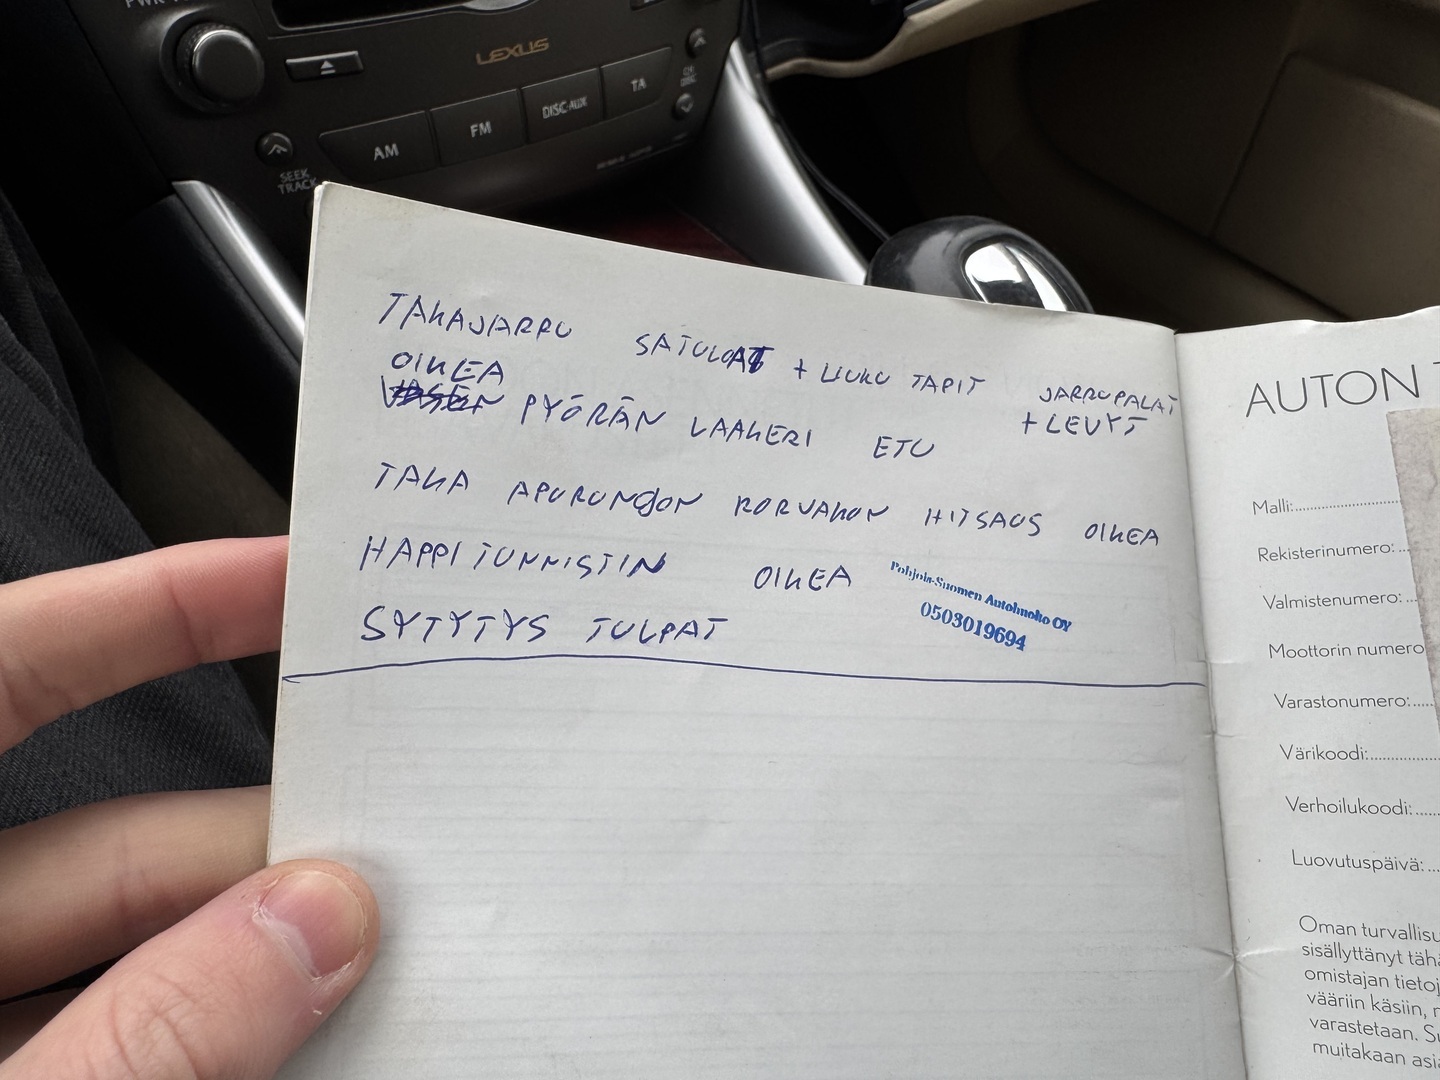 LEXUS
AM
FM
DISC·AUX
TA
SEEK
TRACK
TAKAJARRU SATULAT + LIUKU TAPIT JARRUPALAT
+ LEVYT
OIKEA
PYÖRÄN LAAKERI ETU
TAKA APURUNGON KORVAKON HITSAUS OIKEA
HAPPITUNNISTIN OIKEA
SYTYTYS TULPAT
Pohjois-Suomen Autohuolto OY
0503019694
AUTON
Malli:
Rekisterinumero:
Valmistenumero:
Moottorin numero
Varastonumero:
Värikoodi:
Verhoilukoodi:
Luovutuspäivä:
Oman turvallisu
sisällyttänyt täh
omistajan tietoj
vääriin käsiin,
varastetaan.
muitakaan asi